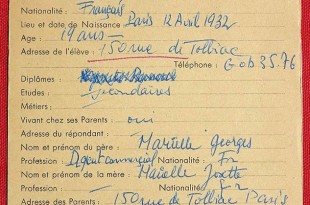 Nationalité : Français
Lieu et date de Naissance Paris 12 Avril 1932
Age : 19 ans
Adresse de l'élève : 150 rue de Tolbiac
Téléphone : Gob 35.76
Diplômes
Etudes : secondaires
Métiers :
Vivant chez ses Parents : oui
Adresse du répondant :
Nom et prénom du père : Marielle Georges
Profession Agent commercial Nationalité : Fr
Nom et prénom de la mère : Marielle Josette
Profession : Nationalité : Fr
Adresse des Parents : 150 rue de Tolbiac Paris